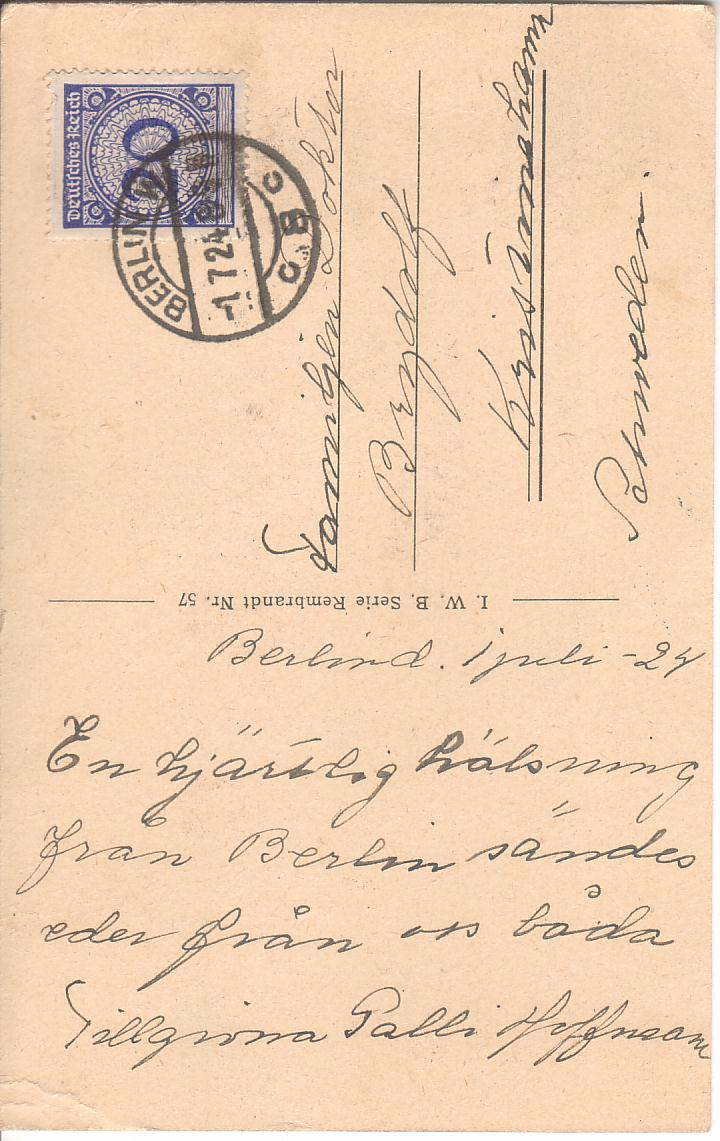 Deutsches Reich
20
BERLIN W
-1.7.24
C 8 C
Familjen Doktor
Brydolf
Kristinehamn
Schweden.
I. W. B. Serie Rembrandt Nr. 57
Berlin d. 1 juli -24
En hjärtlig hälsning
från Berlin sändes
eder från oss båda
Tillgivna Palli Hoffmann